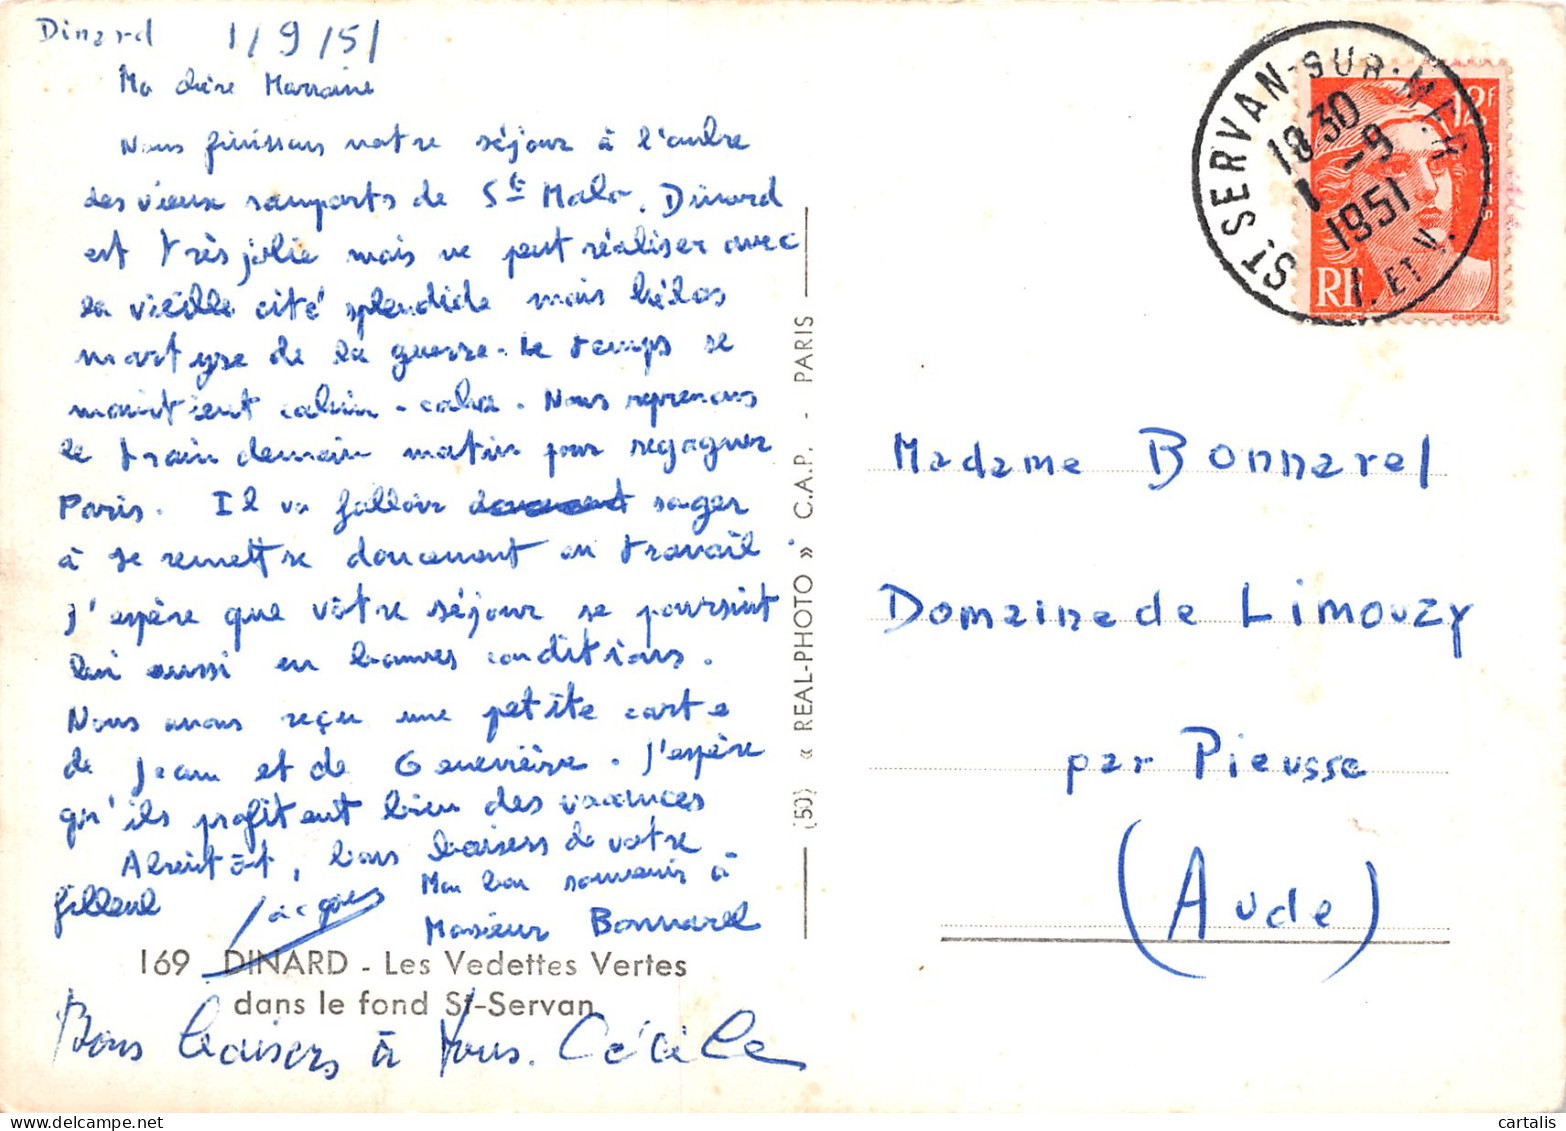 Dinard 1/9/51
Ma chère Marraine
Nous finissons notre séjour à l'ombre
des vieux remparts de St Malo. Dinard
est très jolie mais ne peut réaliser avec
la vieille cité splendide mais hélas
martyre de la guerre. Le temps se
maintient cahin-caha. Nous reprenons
le train demain matin pour regagner
Paris. Il va falloir songer
à se remettre doucement au travail.
J'espère que vôtre séjour se poursuit
lui aussi en bonnes conditions.
Nous avons reçu une petite carte
de Jean et de Geneviève. J'espère
qu'ils profitent bien des vacances
A bientôt, bons baisers de votre
filleul Jacques
Mon bon souvenir à
Monsieur Bonnarel
169 DINARD - Les Vedettes Vertes
dans le fond St-Servan
Bons baisers à Vous. Cécile
(50) « REAL-PHOTO » C.A.P. - PARIS
ST SERVAN-SUR-MER
18 30
1 -9
1951
I. ET V.
12f
POSTES
RF
Madame Bonnarel
Domaine de Limouzy
par Pieusse
(Aude)
cartalis